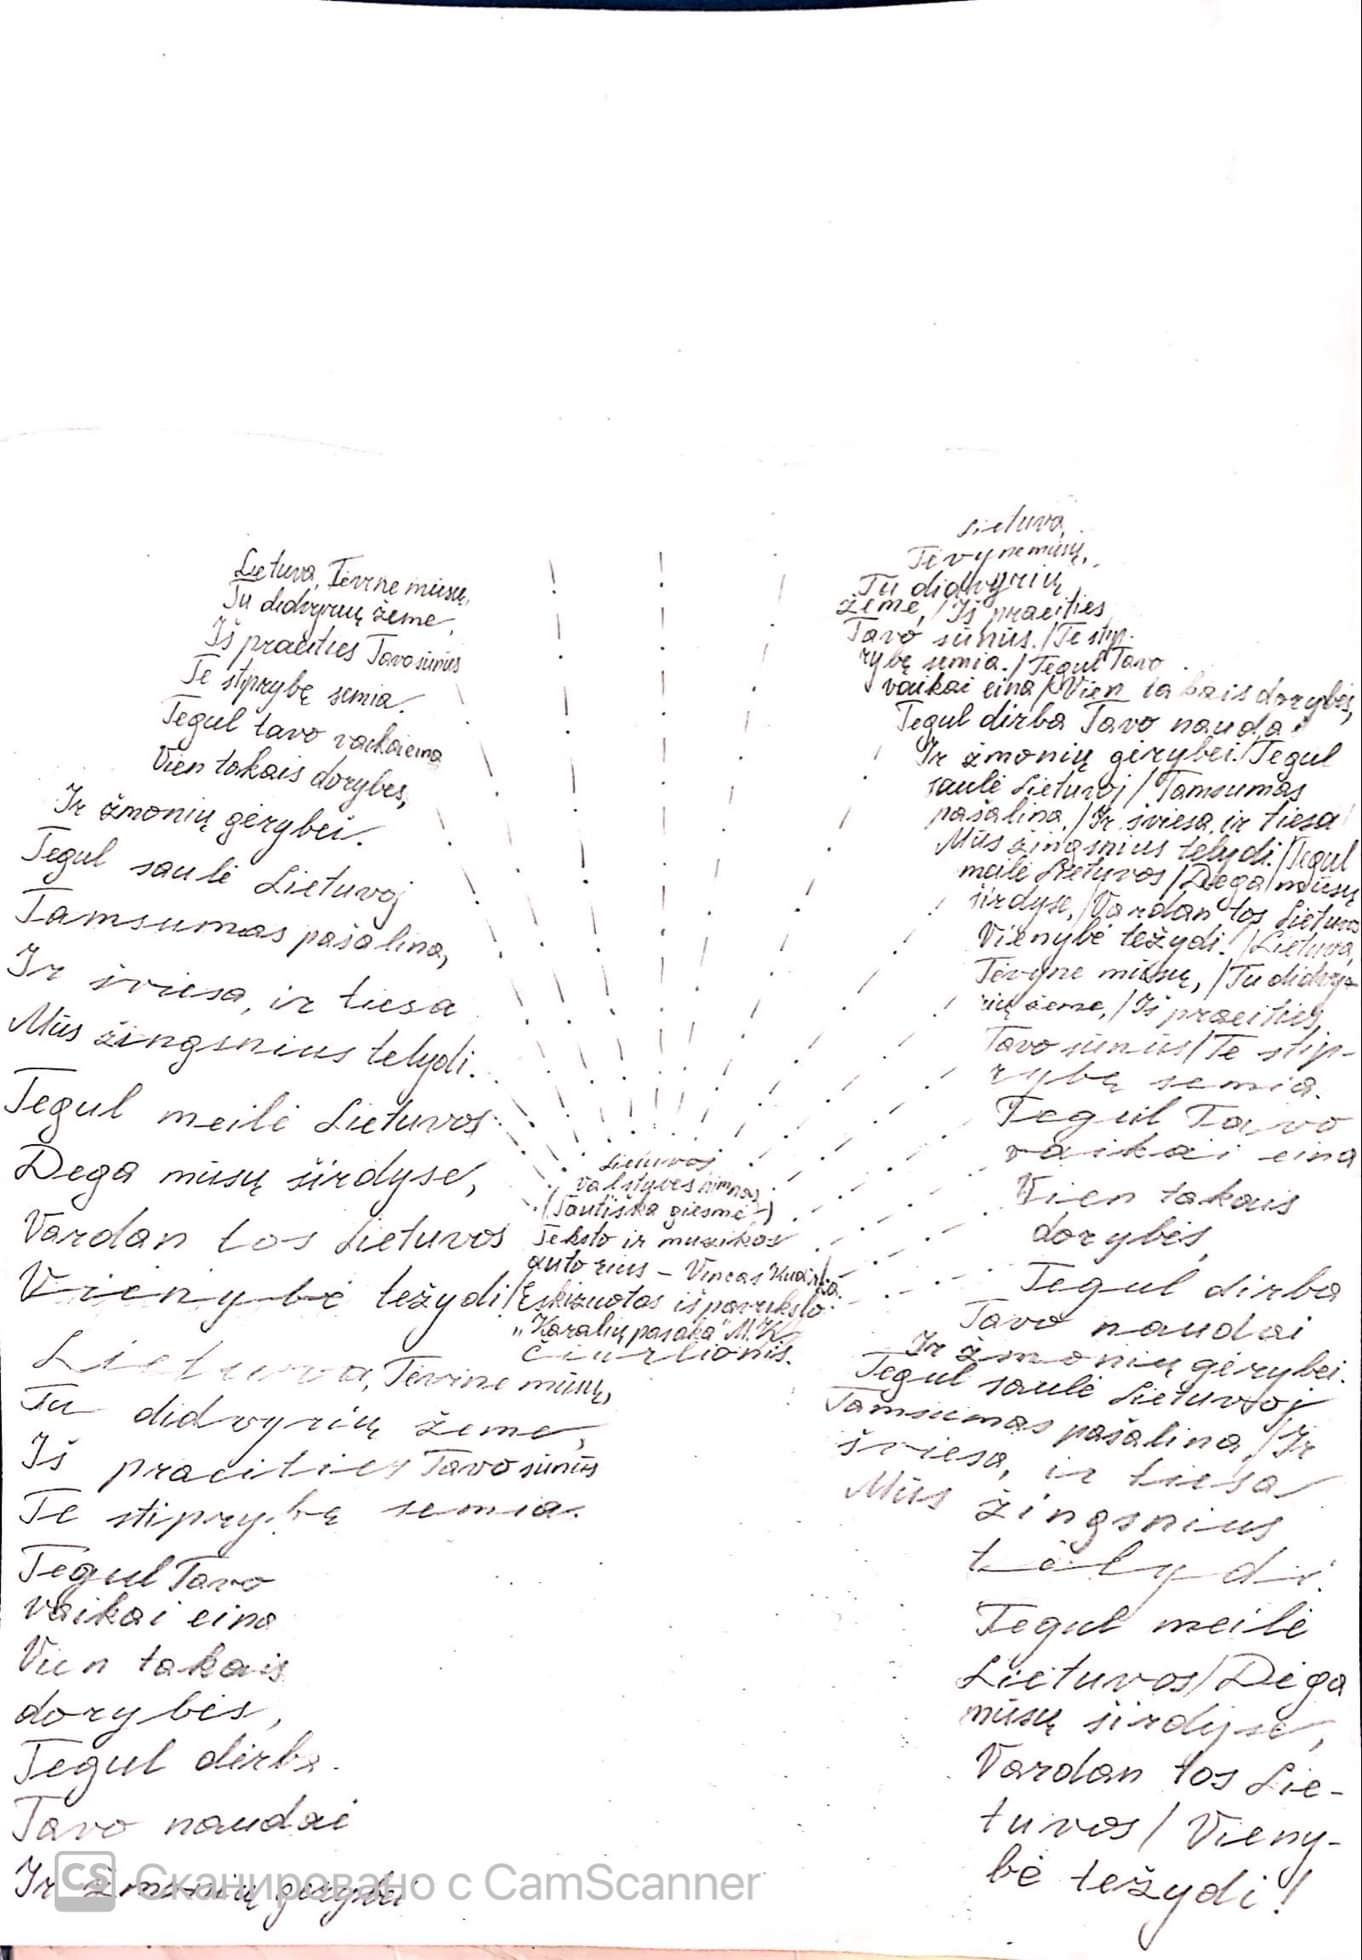 Lietuva, Tėvine mūsų,
Tu didvyrių žeme,
Iš praeities Tavo sūnūs
Te stiprybę semia.
Tegul tavo vaikai eina
Vien takais dorybės,
Ir žmonių gėrybei.
Tegul saulė Lietuvoj
Tamsumas pašalina,
Ir šviesa, ir tiesa
Mūs žingsnius telydi.
Tegul meilė Lietuvos
Dega mūsų širdyse,
Vardan tos Lietuvos
Vienybė težydi!
Lietuva, Tėvine mūsų,
Tu didvyrių žeme,
Iš praeities Tavo sūnūs
Te stiprybę semia.
Tegul Tavo
vaikai eina
Vien takais
dorybės,
Tegul dirba
Tavo naudai
Ir žmonių gėrybei
Lietuvos
valstybės himnas
(Tautiška giesmė)
Teksto ir muzikos
autorius - Vincas Kudirka.
Eskizuotas iš paveikslo
„Karalių pasaka" M.K.
Čiurlionis.
Lietuva,
Tėvyne mūsų,
Tu didvyrių
žeme, / Iš praeities
Tavo sūnūs. / Te stip-
rybę semia. / Tegul Tavo
vaikai eina / Vien takais dorybės,
Tegul dirba Tavo naudai
Ir žmonių gėrybei. / Tegul
saulė Lietuvoj / Tamsumas
pašalina, / Ir šviesa, ir tiesa
Mūs žingsnius telydi. / Tegul
meilė Lietuvos / Dega mūsų
širdyse, / Vardan tos Lietuvos
Vienybė težydi! / Lietuva,
Tėvyne mūsų, / Tu didvy-
rių žeme, / Iš praeities
Tavo sūnūs / Te stip-
rybę semia.
Tegul Tavo
vaikai eina
Vien takais
dorybės,
Tegul dirba
Tavo naudai
Ir žmonių gėrybei.
Tegul saulė Lietuvoj
Tamsumas pašalina, / Ir
šviesa, ir tiesa
Mūs žingsnius
telydi.
Tegul meilė
Lietuvos / Dega
mūsų širdyse,
Vardan tos Lie-
tuvos / Vieny-
bė težydi!
CS Сканировано с CamScanner